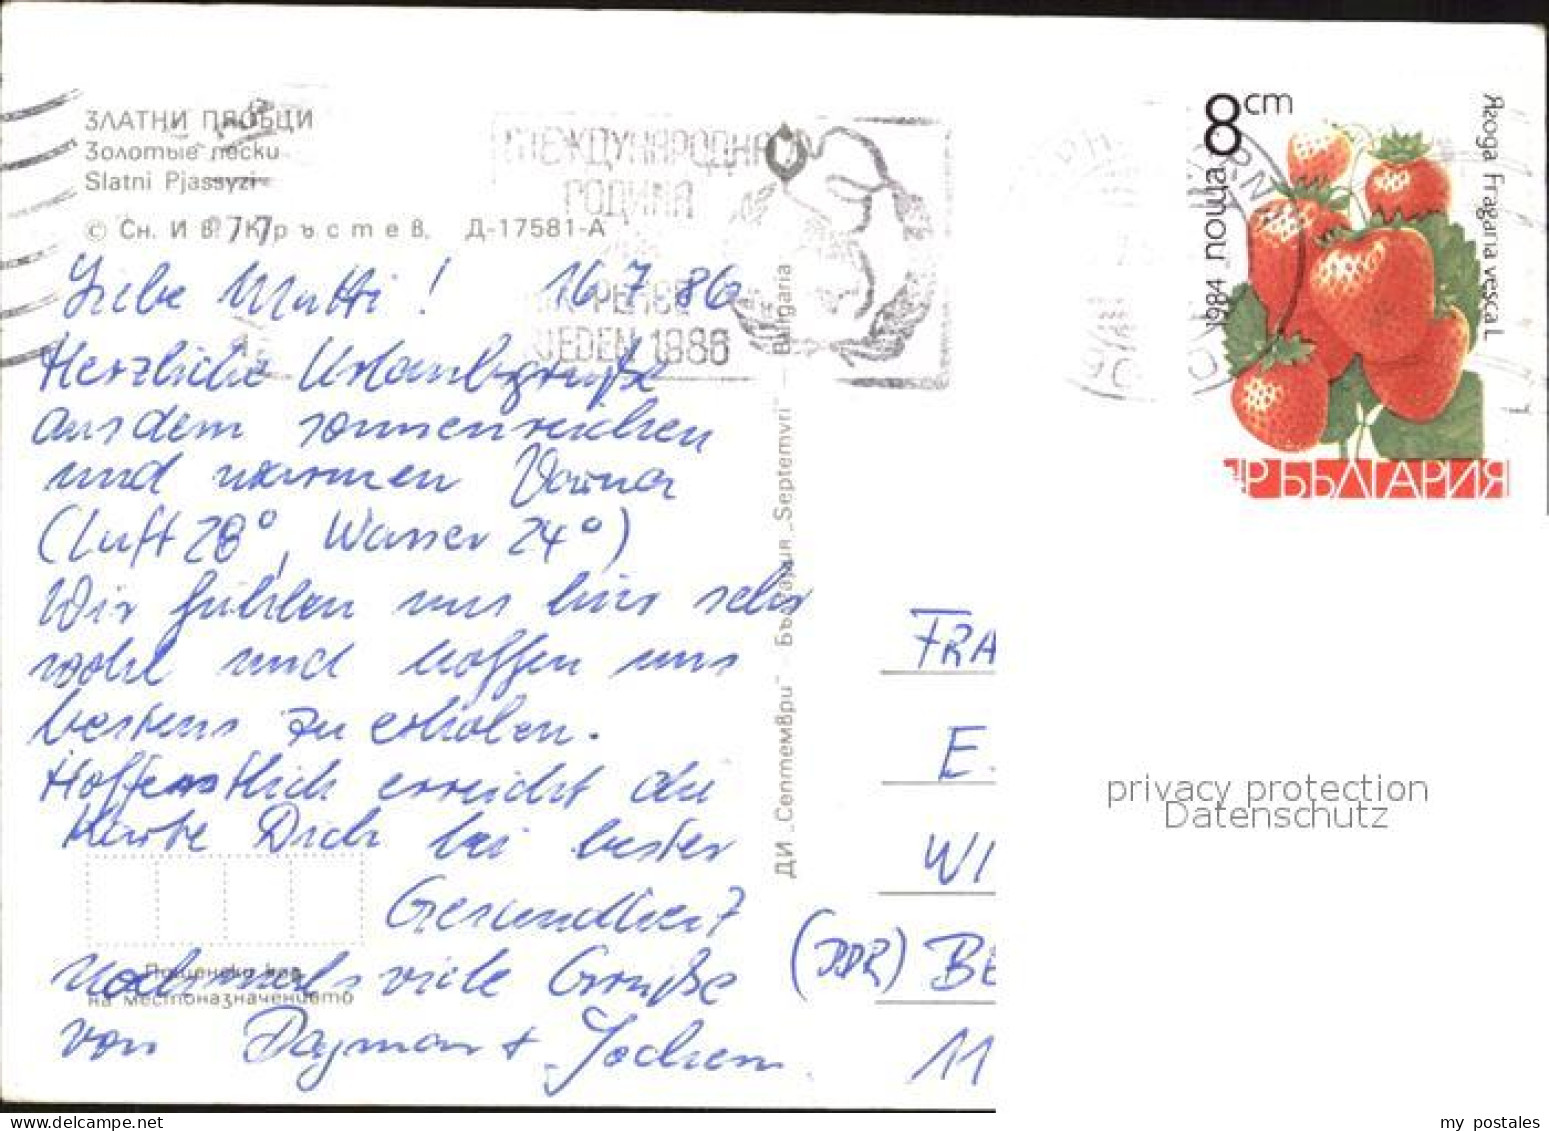 ЗЛАТНИ ПЯСЪЦИ
Золотые пески
Slatni Pjassyzi
© Сн. Ив. Кръстев. Д-17581-А
МЕЖДУНАРОДНА
ГОДИНА
1986
8 cm
поща
1984
Ягода Fragaria vesca L
НР БЪЛГАРИЯ
Liebe Mutti! 16 7 86
Herzliche Urlaubsgrüße
aus dem sonnenreichen
und warmen Varna
(Luft 28°, Wasser 24°)
Wir fühlen uns hier sehr
wohl und hoffen uns
bestens zu erholen.
Hoffentlich erreicht die
Karte Dich bei bester
Gesundheit
nochmals viele Grüße
von Dagmar + Jochem
Пощенски код
на местоназначението
ДИ „Септември“ - България „Septemvri“ - Bulgaria
FRA
E.
WI
(DDR) BE
11
privacy protection
Datenschutz
my postales